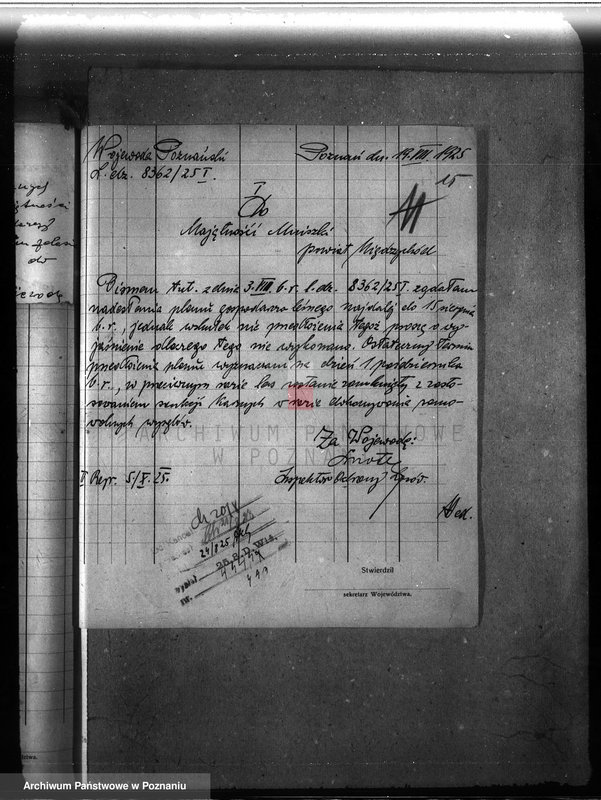 Wojewoda Poznański
L. dz. 8362/25 I.
Poznań dn. 19.VIII.1925
15
I
Do
Majętności Mniszki
powiat Międzychód
Pismem tut. z dnia 3.VIII. b.r. l.dz. 8362/25 I. zażądałem
nadesłania planu gospodarczo leśnego najdalej do 15 sierpnia
b.r., jednak wskutek nie przedłożenia tegoż proszę o wy-
jaśnienie dlaczego tego nie wykonano. Ostateczny termin
przedłożenia planu wyznaczam na dzień 1 października
b.r., w przeciwnym razie las zostanie zamknięty z zasto-
sowaniem sankcji karnych w razie dokonywania samo-
wolnych wyrębów.
Za Wojewodę:
Inspektor Ochrony Lasów.
II Repr. 5/X. 25.
Stwierdził
sekretarz Województwa.
ARCHIWUM PAŃSTWOWE
W POZNANIU
Archiwum Państwowe w Poznaniu